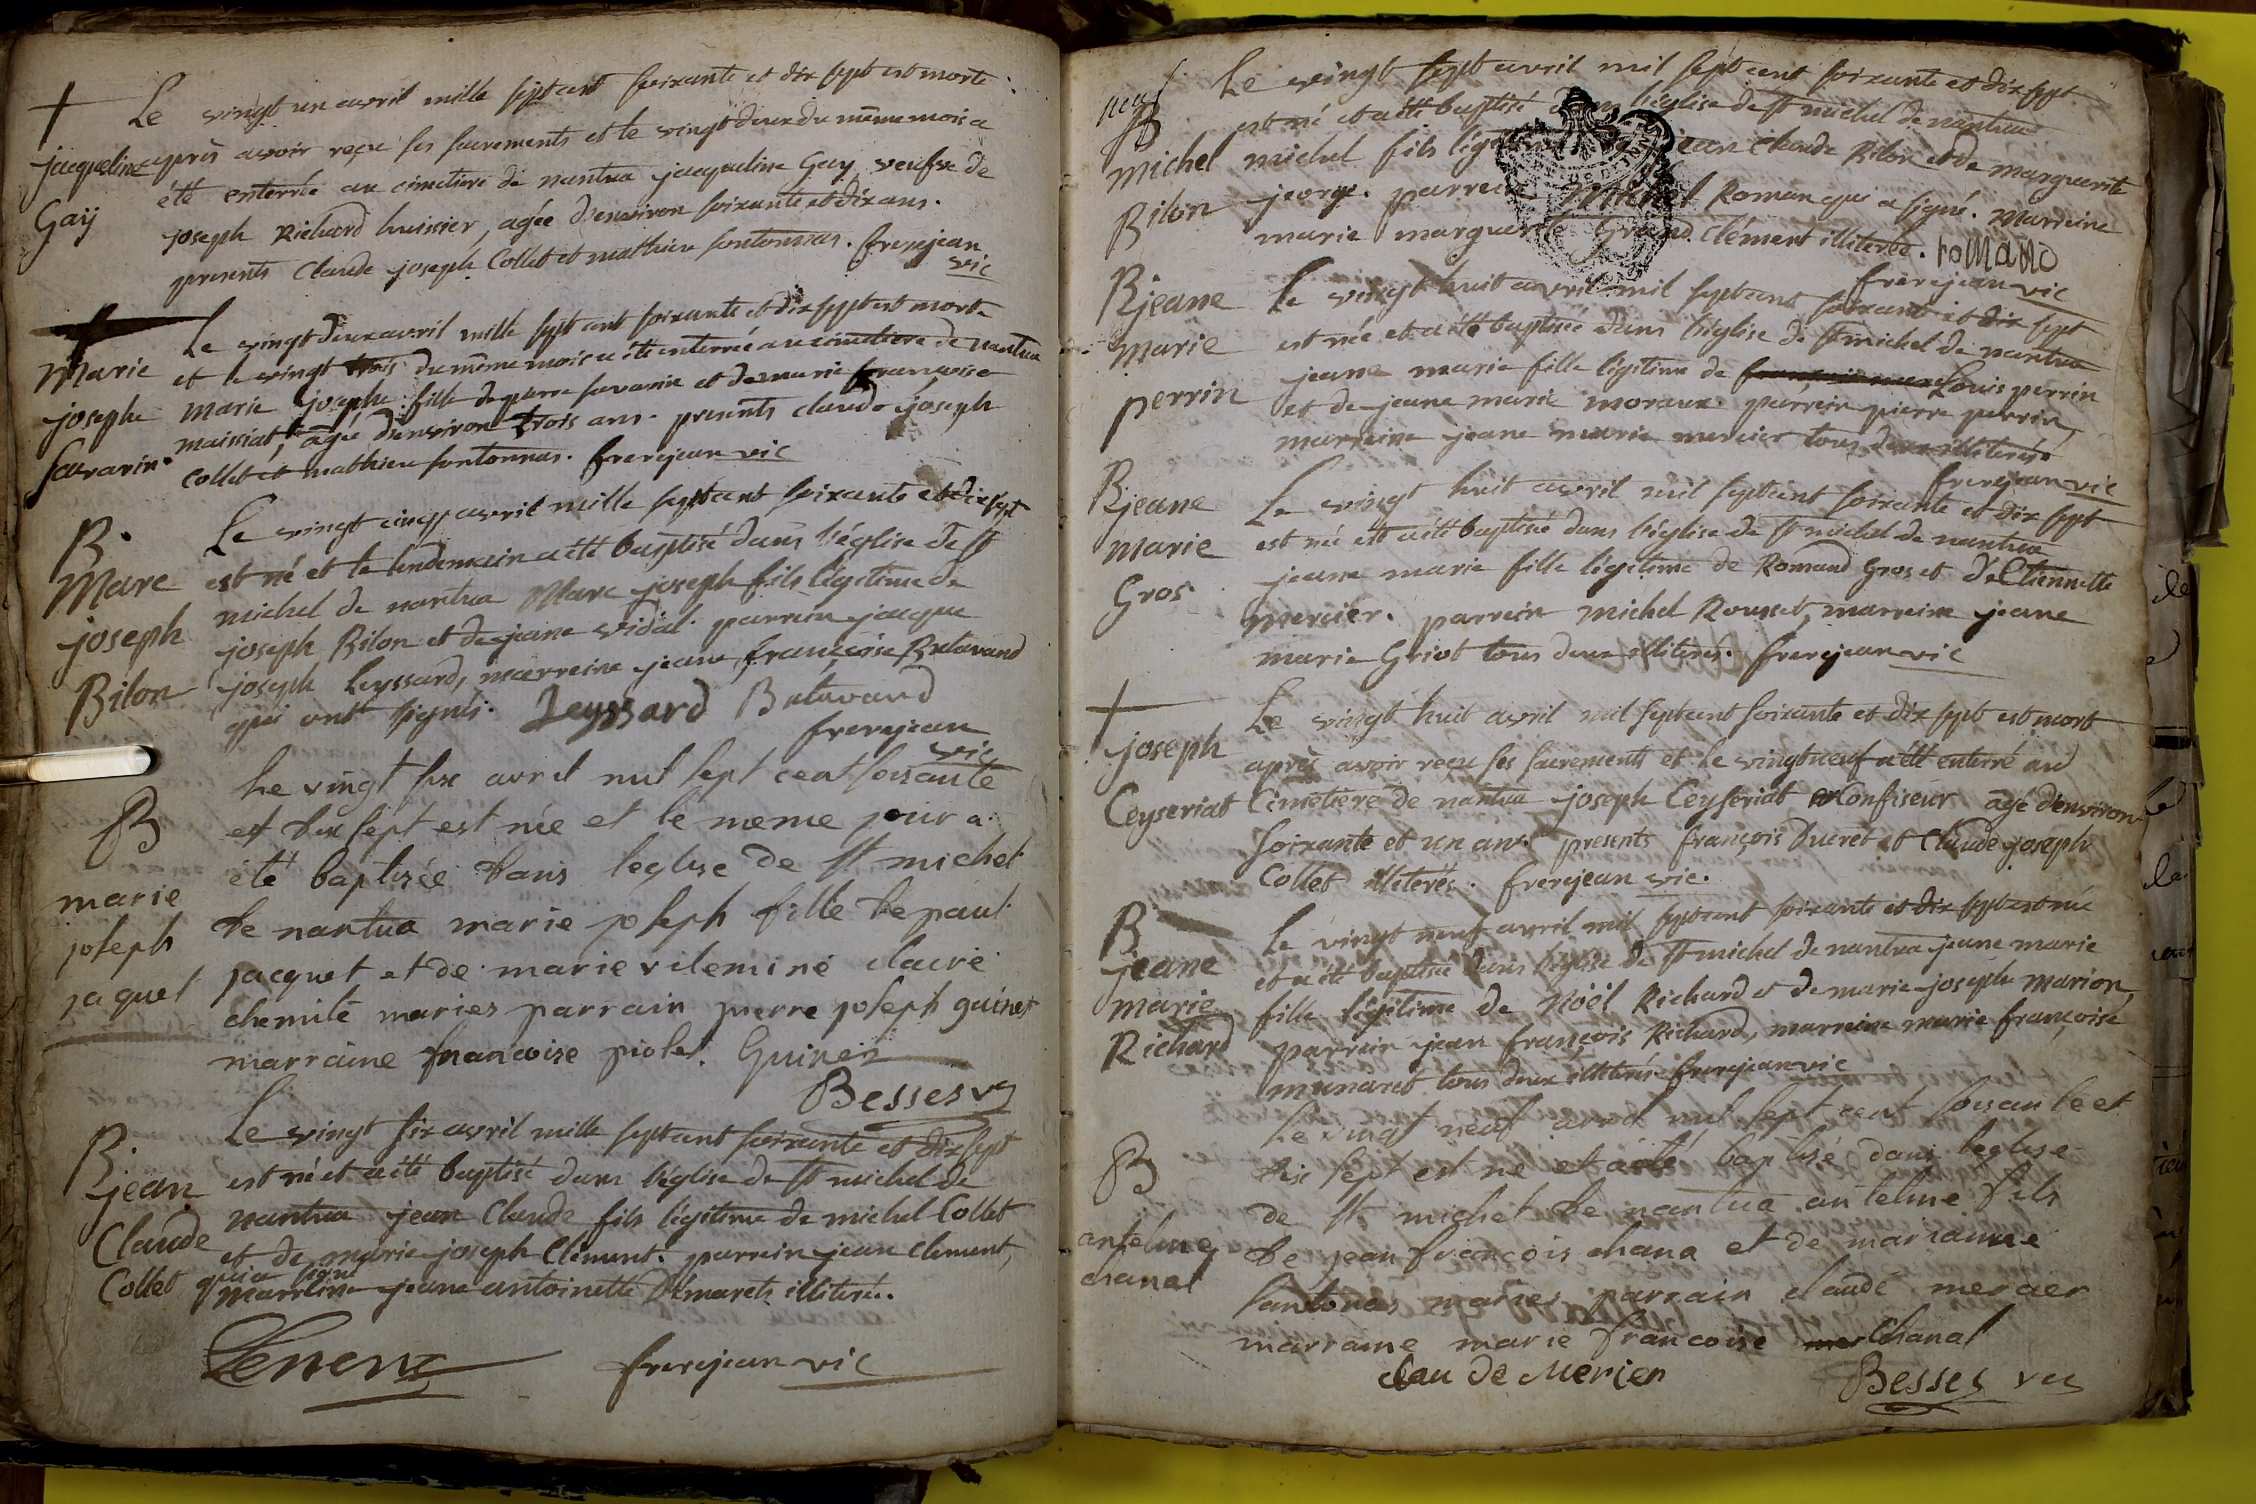 Le vingt un avril mille septcent soixante et dix sept est morte
jacqueline
après avoir reçu ses sacrements et le vingt deux du même mois a
été enterrée au cimetiere de nantua jacqueline Gay, veufve de
Gaÿ
joseph Richard huissier, agée d'environ soixante et dix ans.
presents Claude joseph Collet et mathieu fontonnas. frerejean
vic
Le vingt deux avril mille sept cent soixante et dix sept est morte
Marie
et le vingt trois du même mois a été enterrée au cimetiere de nantua
josephe
marie josephe fille de pierre savarin et de marie françoise
Savarin
maissiat, âgée d'environ trois ans. presents claude joseph
Collet et mathieu fontonnas. frerejean vic
Le vingt cinq avril mille septcent soixante et dix sept
B.
est né et le lendemain a été baptisé dans l'église de st
Marc
michel de nantua Marc joseph fils légitime de
joseph
joseph Bilon et de jeane vidal. parrein jacque
Bilon
joseph Leyssard, marreine jeane françoise Balavand
qui ont signés. Leyssard Balavand
frerejean
vic
Le vingt six avril mil sept cent soisante
B
et dix sept est née et le meme jour a
été baptisée dans leglise de st michel
marie
de nantua marie joseph fille de paul
joseph
jaquet
jacquet et de marie vilemine claire
chemite maries parrain pierre joseph guinet
marraine francoise piolet. Guinet
Besses vic
Le vingt six avril mille septcent soixante et dix sept
B jean
est né et a été baptisé dans l'église de st michel de
Claude
nantua jean Claude fils légitime de michel Collet
et de marie joseph Clément. parrein jean clement,
Collet
qui a signé
marreine jeane antoinette Démarets illiterée.
frerejean vic
Le vingt sept avril mil sept cent soixante et dix sept
B
est né et a été baptisé dans l'église de st michel de nantua
michel
michel fils légitime de jean Claude Bilon et de marguerite
Bilon
jeorge. parrein Michel Roman qui a signé. Marreine
marie marguerite Grand Clément illiterée. romand
frerejean vic
B jeane
Le vingt huit avril mil septcent soixante et dix sept
marie
est née et a été baptisée dans l'église de st michel de nantua
jeane marie fille légitime de Louis perrin
perrin
et de jeane marie moraux. parrein pierre perrin,
marreine jeane marie mercier tous deux illiterés
frerejean vic
B jeane
Le vingt huit avril mil septcent soixante et dix sept
marie
est née et a été baptisée dans l'église de st michel de nantua
Gros
jeane marie fille légitime de Romand Gros et d'Etiennette
mercier. parrein michel Rousset, marreine jeane
marie Griot tous deux illiterés. frerejean vic
Le vingt huit avril mil septcent soixante et dix sept est mort
joseph
après avoir reçu ses sacrements et le vingt neuf a été enterré au
Ceyseriat
Cimetiere de nantua joseph Ceyseriat Confiseur agé d'environ
soixante et un ans. presents françois Ducret et Claude joseph
Collet illiterés. frerejean vic.
B
Le vingt neuf avril mil septcent soixante et dix sept est née
jeane
et a été baptisée dans l'église de st michel de nantua jeane marie
marie
fille légitime de Nöel Richard et de marie joseph marion,
Richard
parrein jean françois Richard, marreine marie françoise
munaret tous deux illiterés frerejean vic
Le vingt neuf avril mil sept cent soisante et
B
dix sept est né et a été baptisé dans leglise
de st michel de nantua antelme fils
antelme
de jean françois chana et de marianne
chanal
santonas maries parrain claude mercier
marraine marie francoise Chanal
clau de Merier
Besses vic